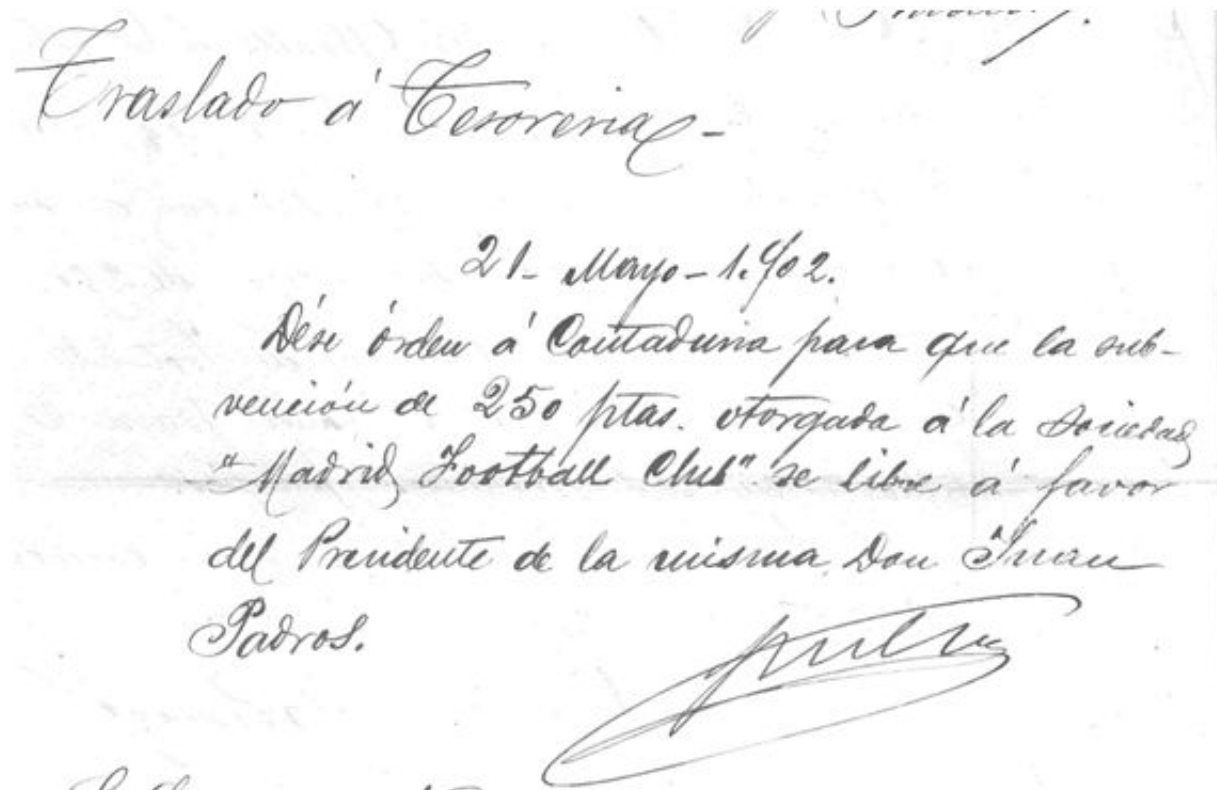 Traslado á Tesoreria-
21- Mayo-1.902.
Dése órden á Contaduria para que la sub-
vención de 250 ptas. otorgada á la Sociedad
"Madrid Football Club" se libre á favor
del Presidente de la misma Don Juan
Padros.